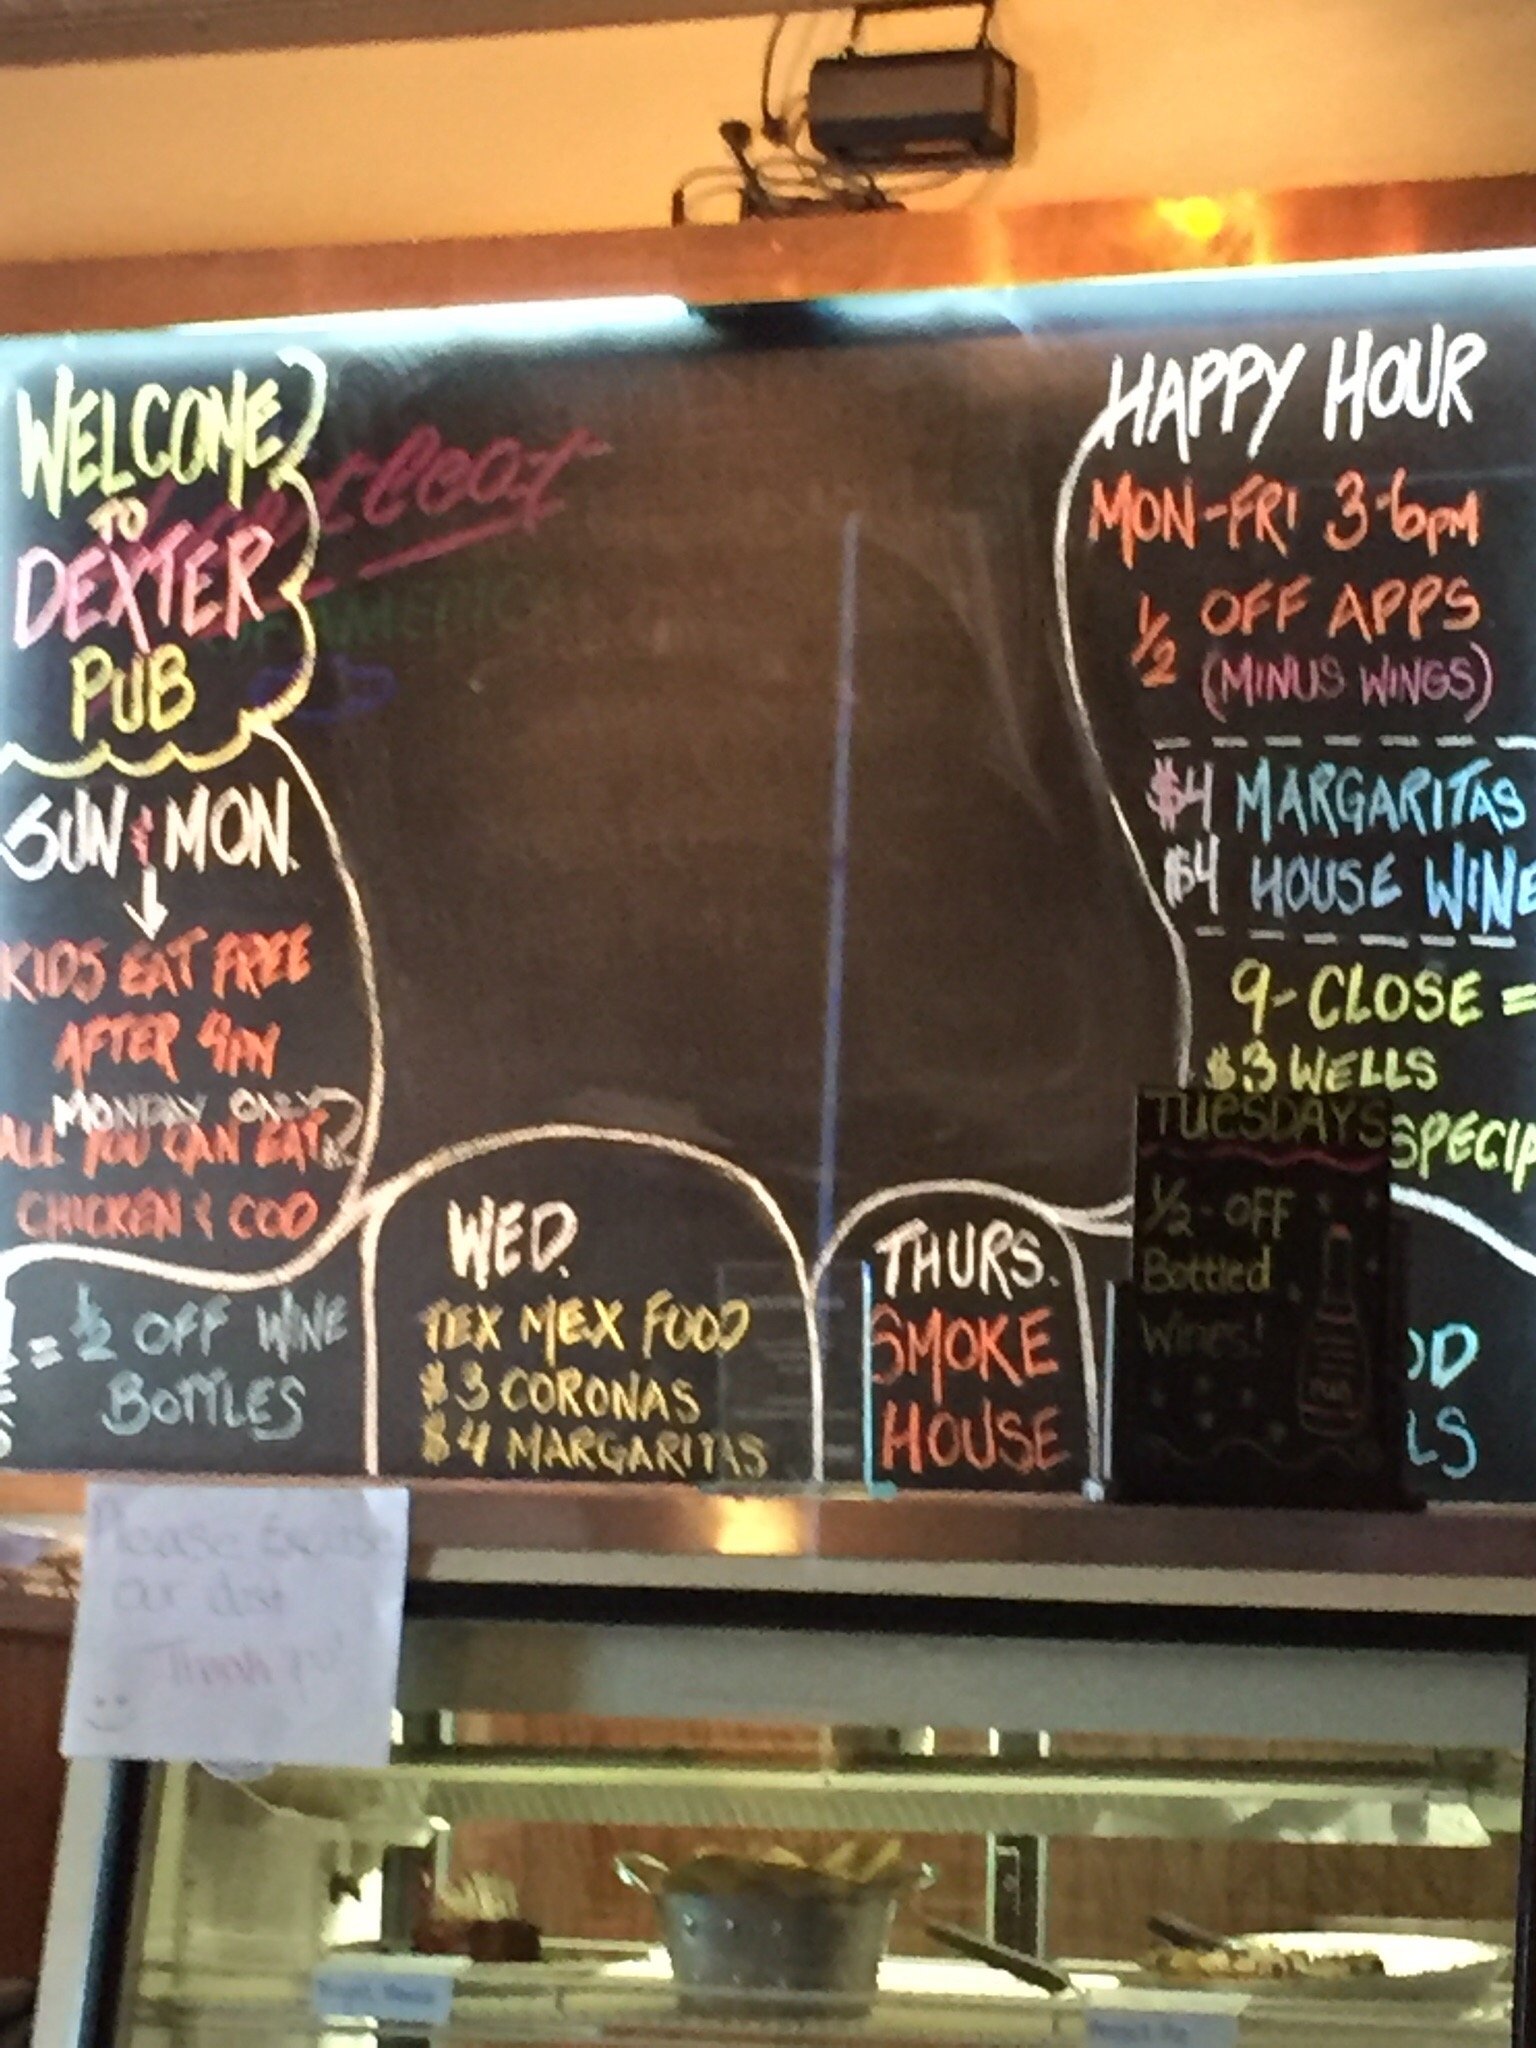 WELCOME
TO
DEXTER
PUB
SUN & MON.
KIDS EAT FREE
AFTER 4PM
MONDAY ONLY
ALL YOU CAN EAT
CHICKEN & COD
= 1/2 OFF WINE
BOTTLES
WED.
TEX MEX FOOD
$3 CORONAS
$4 MARGARITAS
THURS.
SMOKE
HOUSE
HAPPY HOUR
MON-FRI 3-6PM
1/2 OFF APPS
(MINUS WINGS)
$4 MARGARITAS
$4 HOUSE WINE
9-CLOSE =
$3 WELLS
SPECIA
TUESDAYS
1/2-OFF
Bottled
Wines!
OD
LS
Please Excuse
our dust
Thank you!